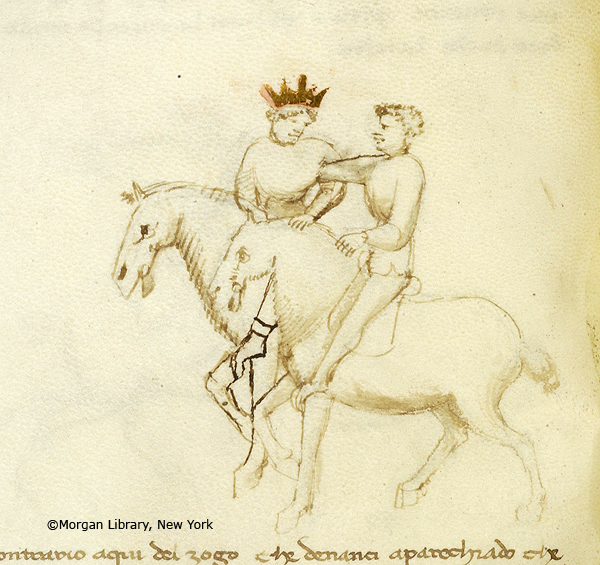 ©Morgan Library, New York
ontrario aqui del zogo che denanci aparechiado che